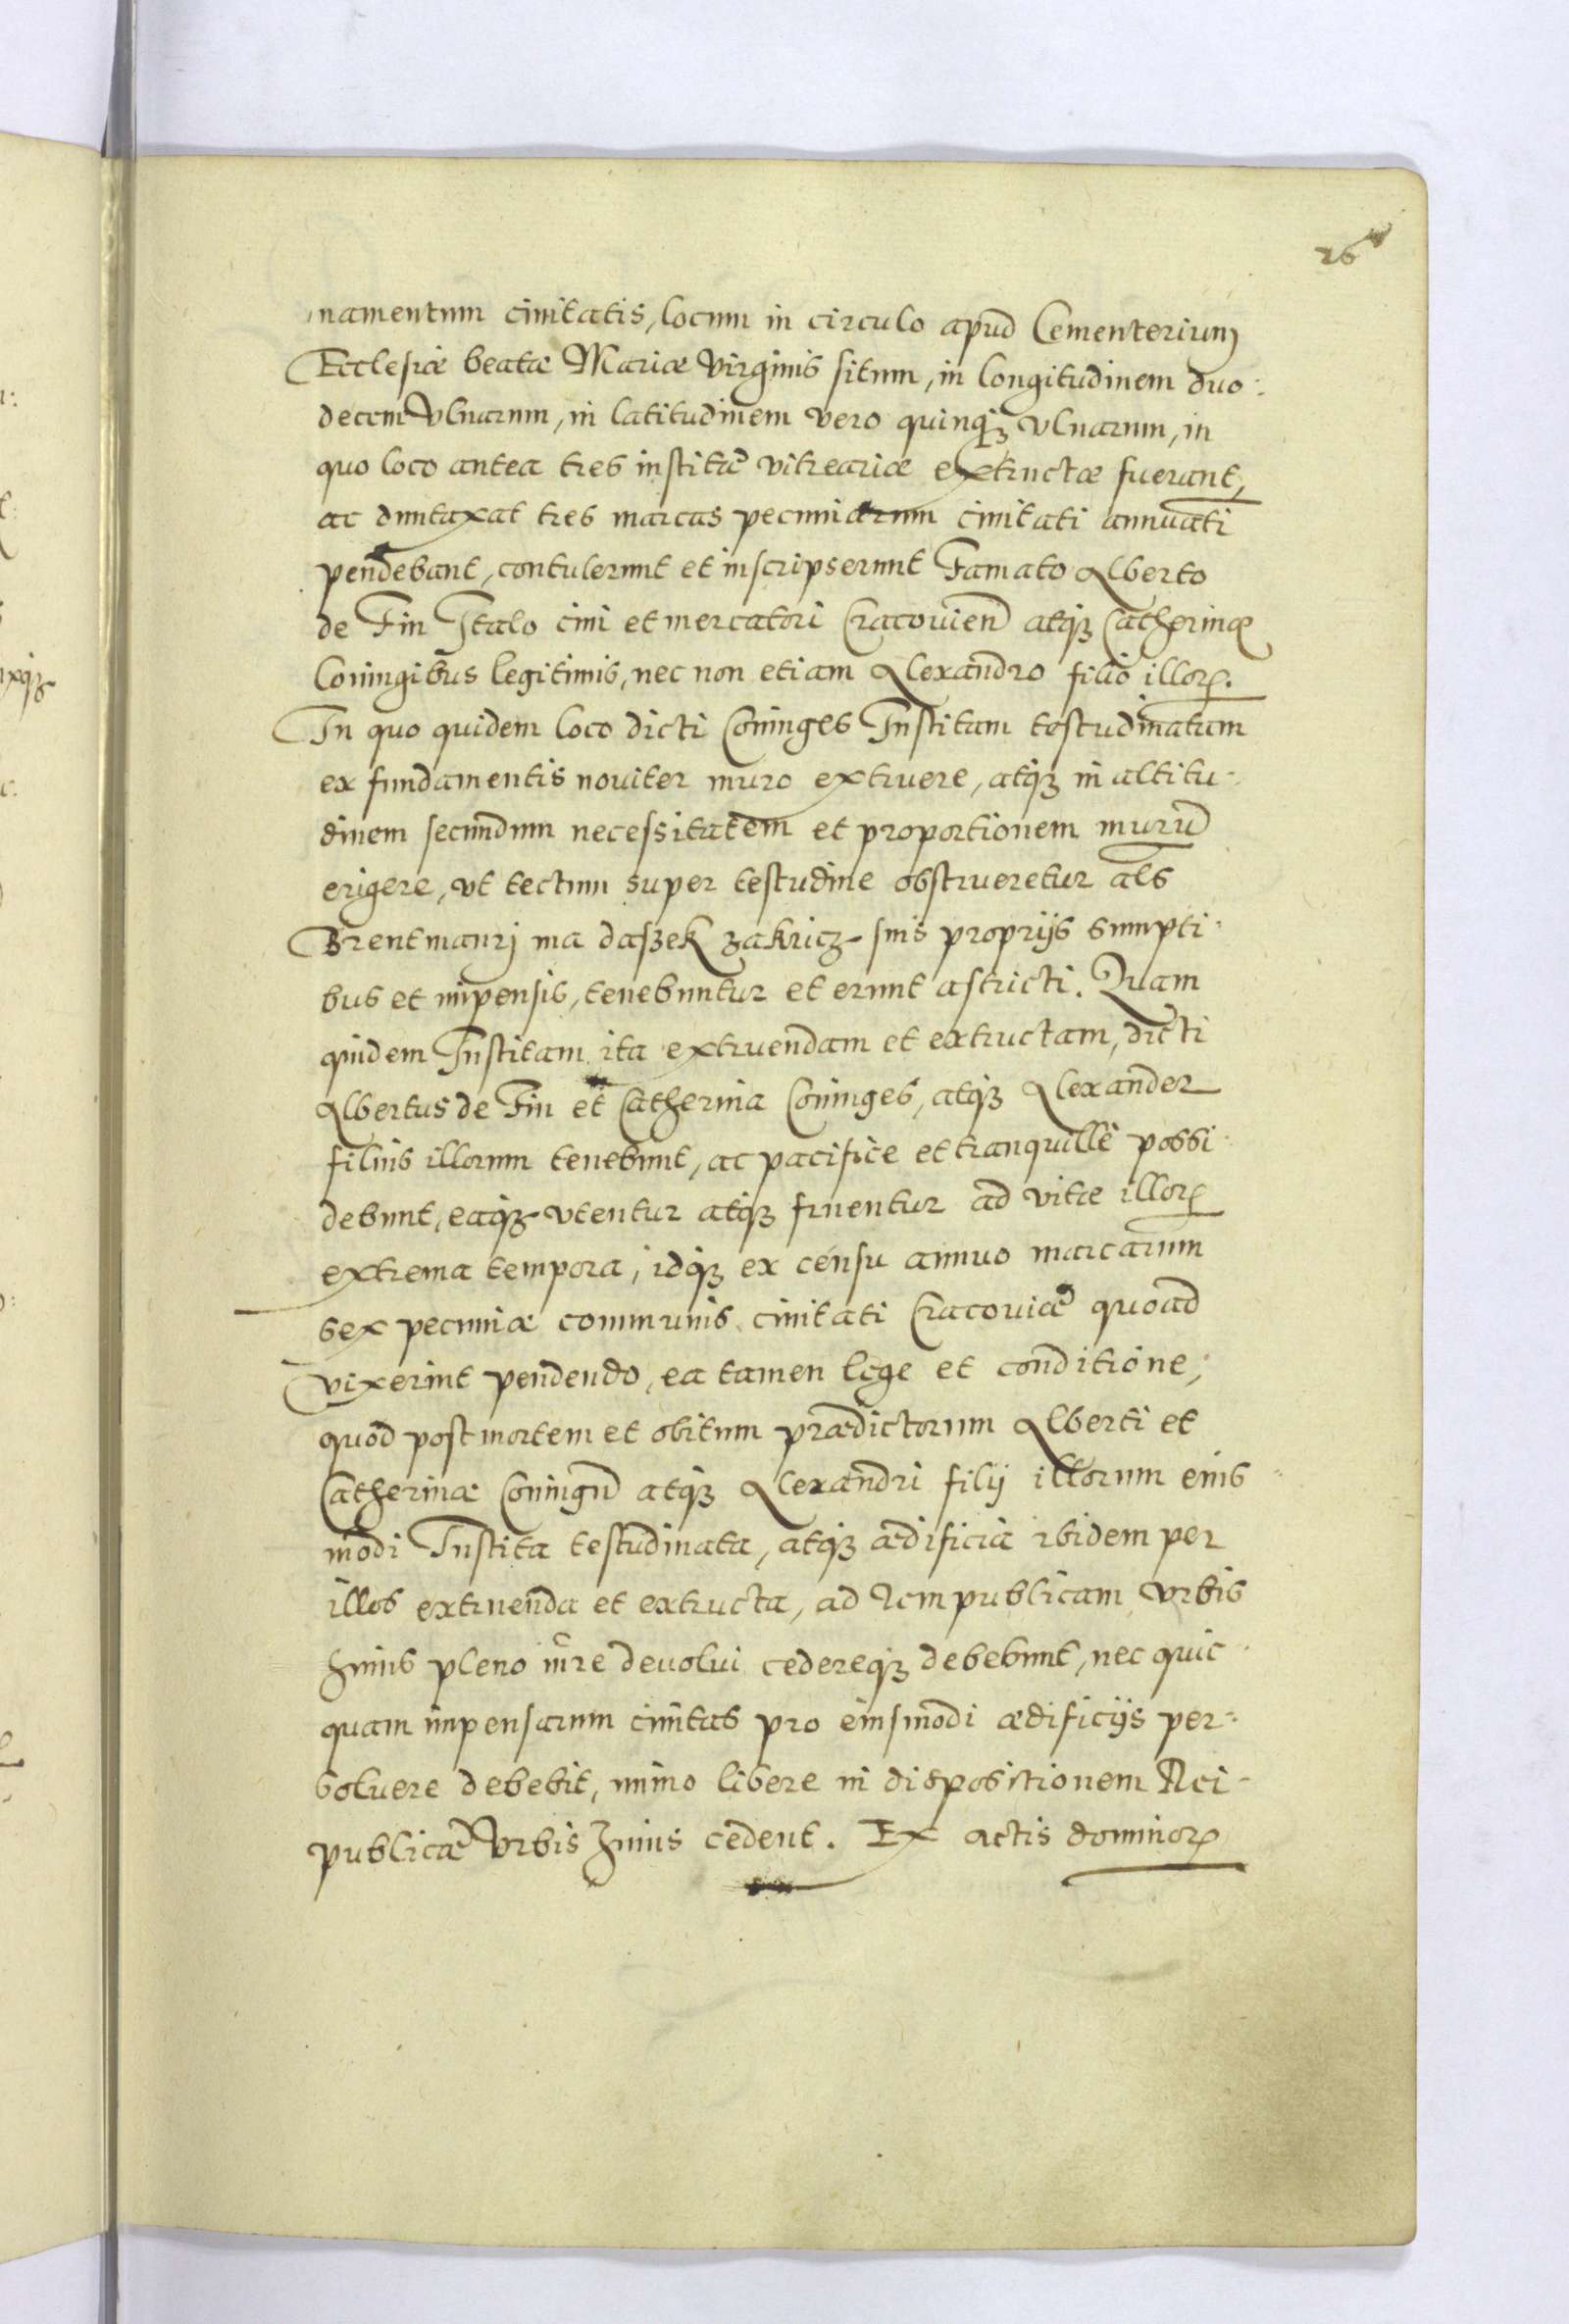 26
namentum ciuitatis, locum in circulo apud Cementerium
Ecclesiæ beatæ Mariæ Virginis situm, in longitudinem duo:
decem vlnarum, in latitudinem vero quinqȝ vlnarum, in
quo loco antea tres institæ vitreariæ extructæ fuerant,
ac duntaxat tres marcas pecuniarum ciuitati annuati
pendebant, contulerunt et inscripserunt Famato Alberto
de Fin Italo ciui et mercatori Cracouien̄ atqȝ Catherinæ
Coniugibus legitimis, nec non etiam Alexandro filio illorꝝ.
In quo quidem loco dicti Coniuges Institam testudinatam
ex fundamentis nouiter muro extruere, atqȝ in altitu-
dinem secundum necessitatem et proportionem murū
erigere, vt tectum super testudine obstrueretur als
Brentmaurj ma daszek zakricz suis proprijs sumpti-
bus et impensis, tenebuntur et erunt astricti. Quam
quidem Institam ita extruendam et extructam, dicti
Albertus de Fin et Catherina Coniuges, atqȝ Alexander
filius illorum tenebunt, ac pacifice et tranquille possi-
debunt, eaqȝ vtentur atqȝ fruentur ad vitæ illorꝝ
extrema tempora, idqȝ ex censu annuo marcarum
sex pecuniæ communis ciuitati Cracouiæ quoad
vixerint pendendo, ea tamen lege et conditione,
quod post mortem et obitum prædictorum Alberti et
Catherinæ Coniugū atqȝ Alexandri filij illorum eius-
modi Instita testudinata, atqȝ ædificia ibidem per
illos extruenda et extructa, ad Rempublicam vrbis
huius pleno iure deuolui cedereqȝ debebunt, nec quic-
quam impensarum ciuitas pro eiusmodi ædificijs per-
soluere debebit, immo libere in dispositionem Rei-
publicæ Vrbis huius cedent. Ex actis dominorꝝ